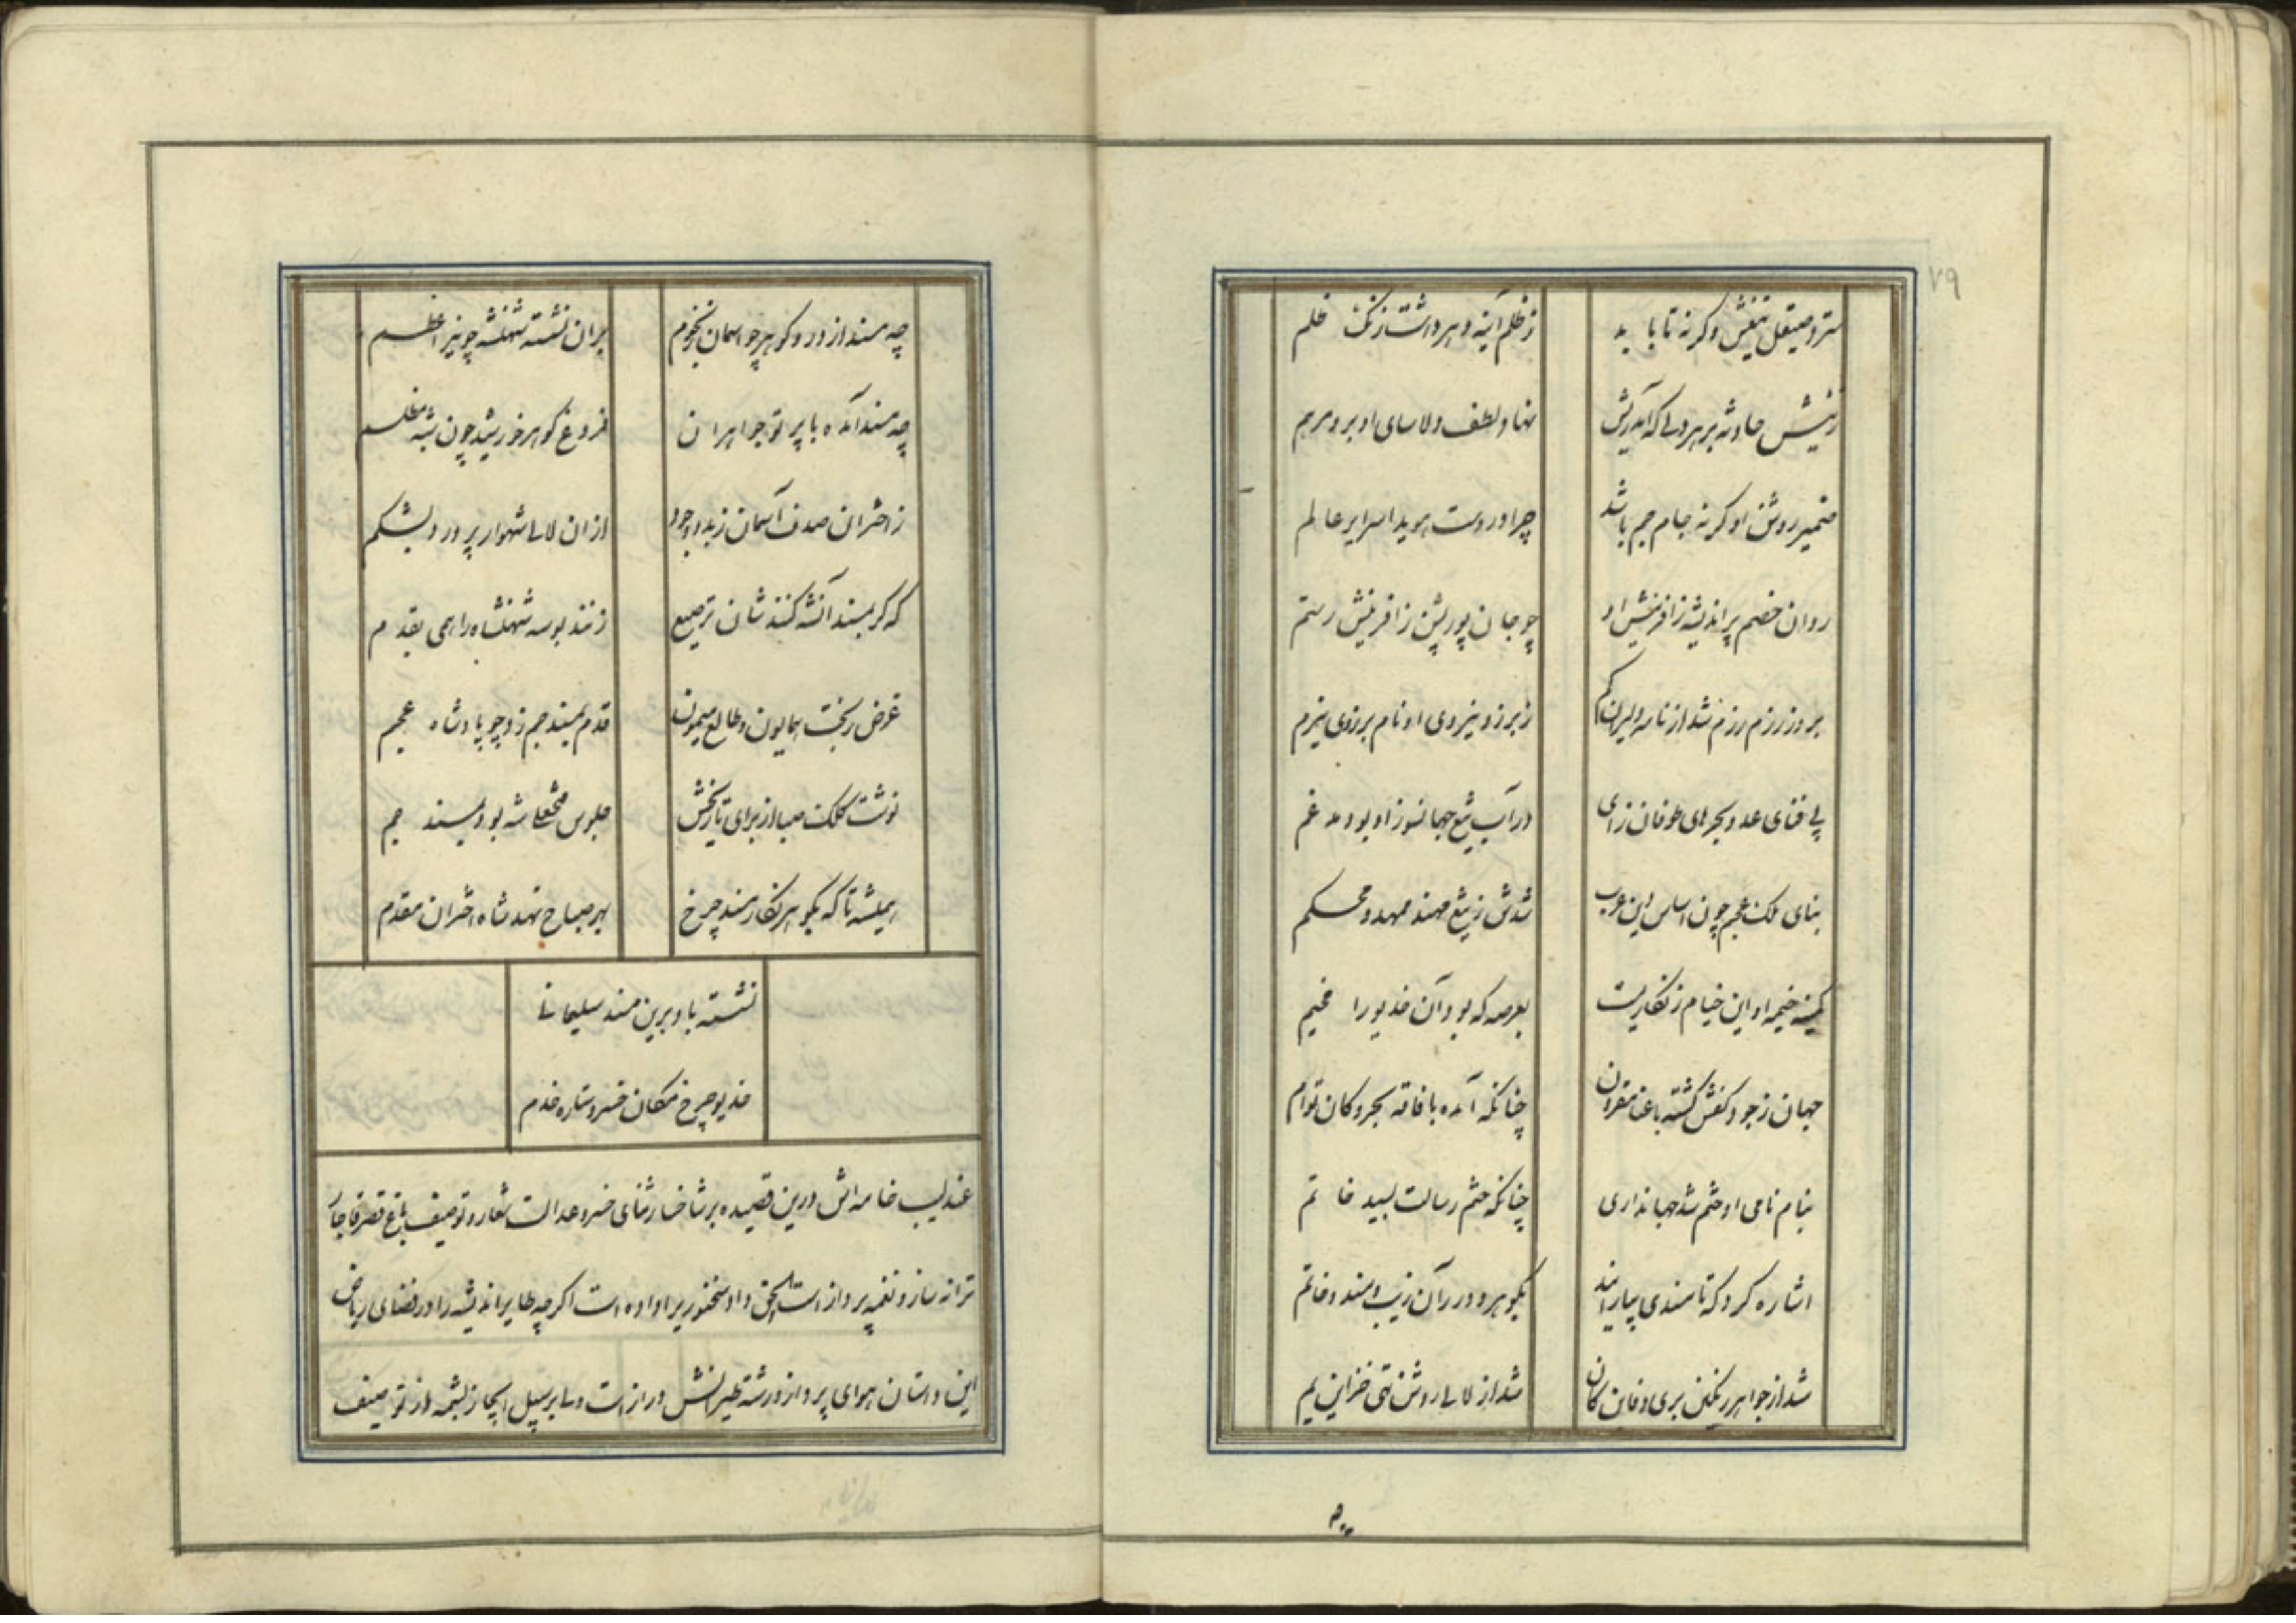 ۷۹
سترد صیقل تیغش وگرنه تا بابد
ز ظلم آینه دهر داشت زنک ظلم
زنیش حادثه بر هر دلی که آمد ریش
نهاد لطف دلاسای او برو مرهم
ضمیر روشن او گرنه جام جم باشد
چرا دروست هویدا سرایر عالم
روان خصم پر اندیشه ز آفرینش او
چو جان پور پشن ز آفرینش رستم
بروز رزم رزم شد از نامه دلیران کم
ز برز و نیروی او نام برزوی نیرم
پی فنای عدو بحرهای طوفان زای
در آب تیغ جهانسوز او بود مدغم
بنای ملک عجم چون اساس دین عرب
شدش ز تیغ مهند ممهد و محکم
کمینه خیمه او این خیام زنکاریست
بعرصه که بود آن خدیو را مخیم
جهان ز جود کفش کشته با غنا مقرون
چنانکه آمده با فاقه بحر و کان توأم
بنام نامی او ختم شد جهانداری
چنانکه ختم رسالت بسید خاتم
اشاره کرد که تا مسندی بیارایند
بکوهر و درر آن زیب مسند و خاتم
شد از جواهر رنکین بری دفاین کان
شد از لالی روشن تهی خزاین یم
چه
چه مسند از در و کوهر چو اسمان بنجوم
بران نشسته شهنشه چو نیر اعظم
چه مسند آمده با پرتو جواهر ان
فروغ کوهر خورشید چون شبه مظلم
ز اختران صدف آسمان ز بدو وجود
ازان لالی شهوار پرورد بشکم
که کر بمسند آنشه کنندشان ترصیع
زنند بوسه شهنشاه را همی بقدم
غرض ببخت همایون و طالع میمون
قدم بمسند جم زد چو پادشاه عجم
نوشت کلک صبا از برای تاریخش
جلوس فتحعلی شه بود بمسند جم
همیشه تا که بکوهرنکار مسند چرخ
بهر صباح نهد شاه اختران مقدم
نشسته باد برین مسند سلیمانی
خدیو چرخ مکان خسرو ستاره خدم
عندلیب خامه اش درین قصیده بر شاخسار ثنای خسرو عدالت شعار و توصیف باغ قصر قاجار
ترانه ساز و نغمه پرداز است الحق داد سخنوری را داده است اکرچه طایر اندیشه را در فضای ریاض
این داستان هوای پرواز و رشته طیرانش دراز است ولی بر سبیل ایجاز بشمه از توصیف